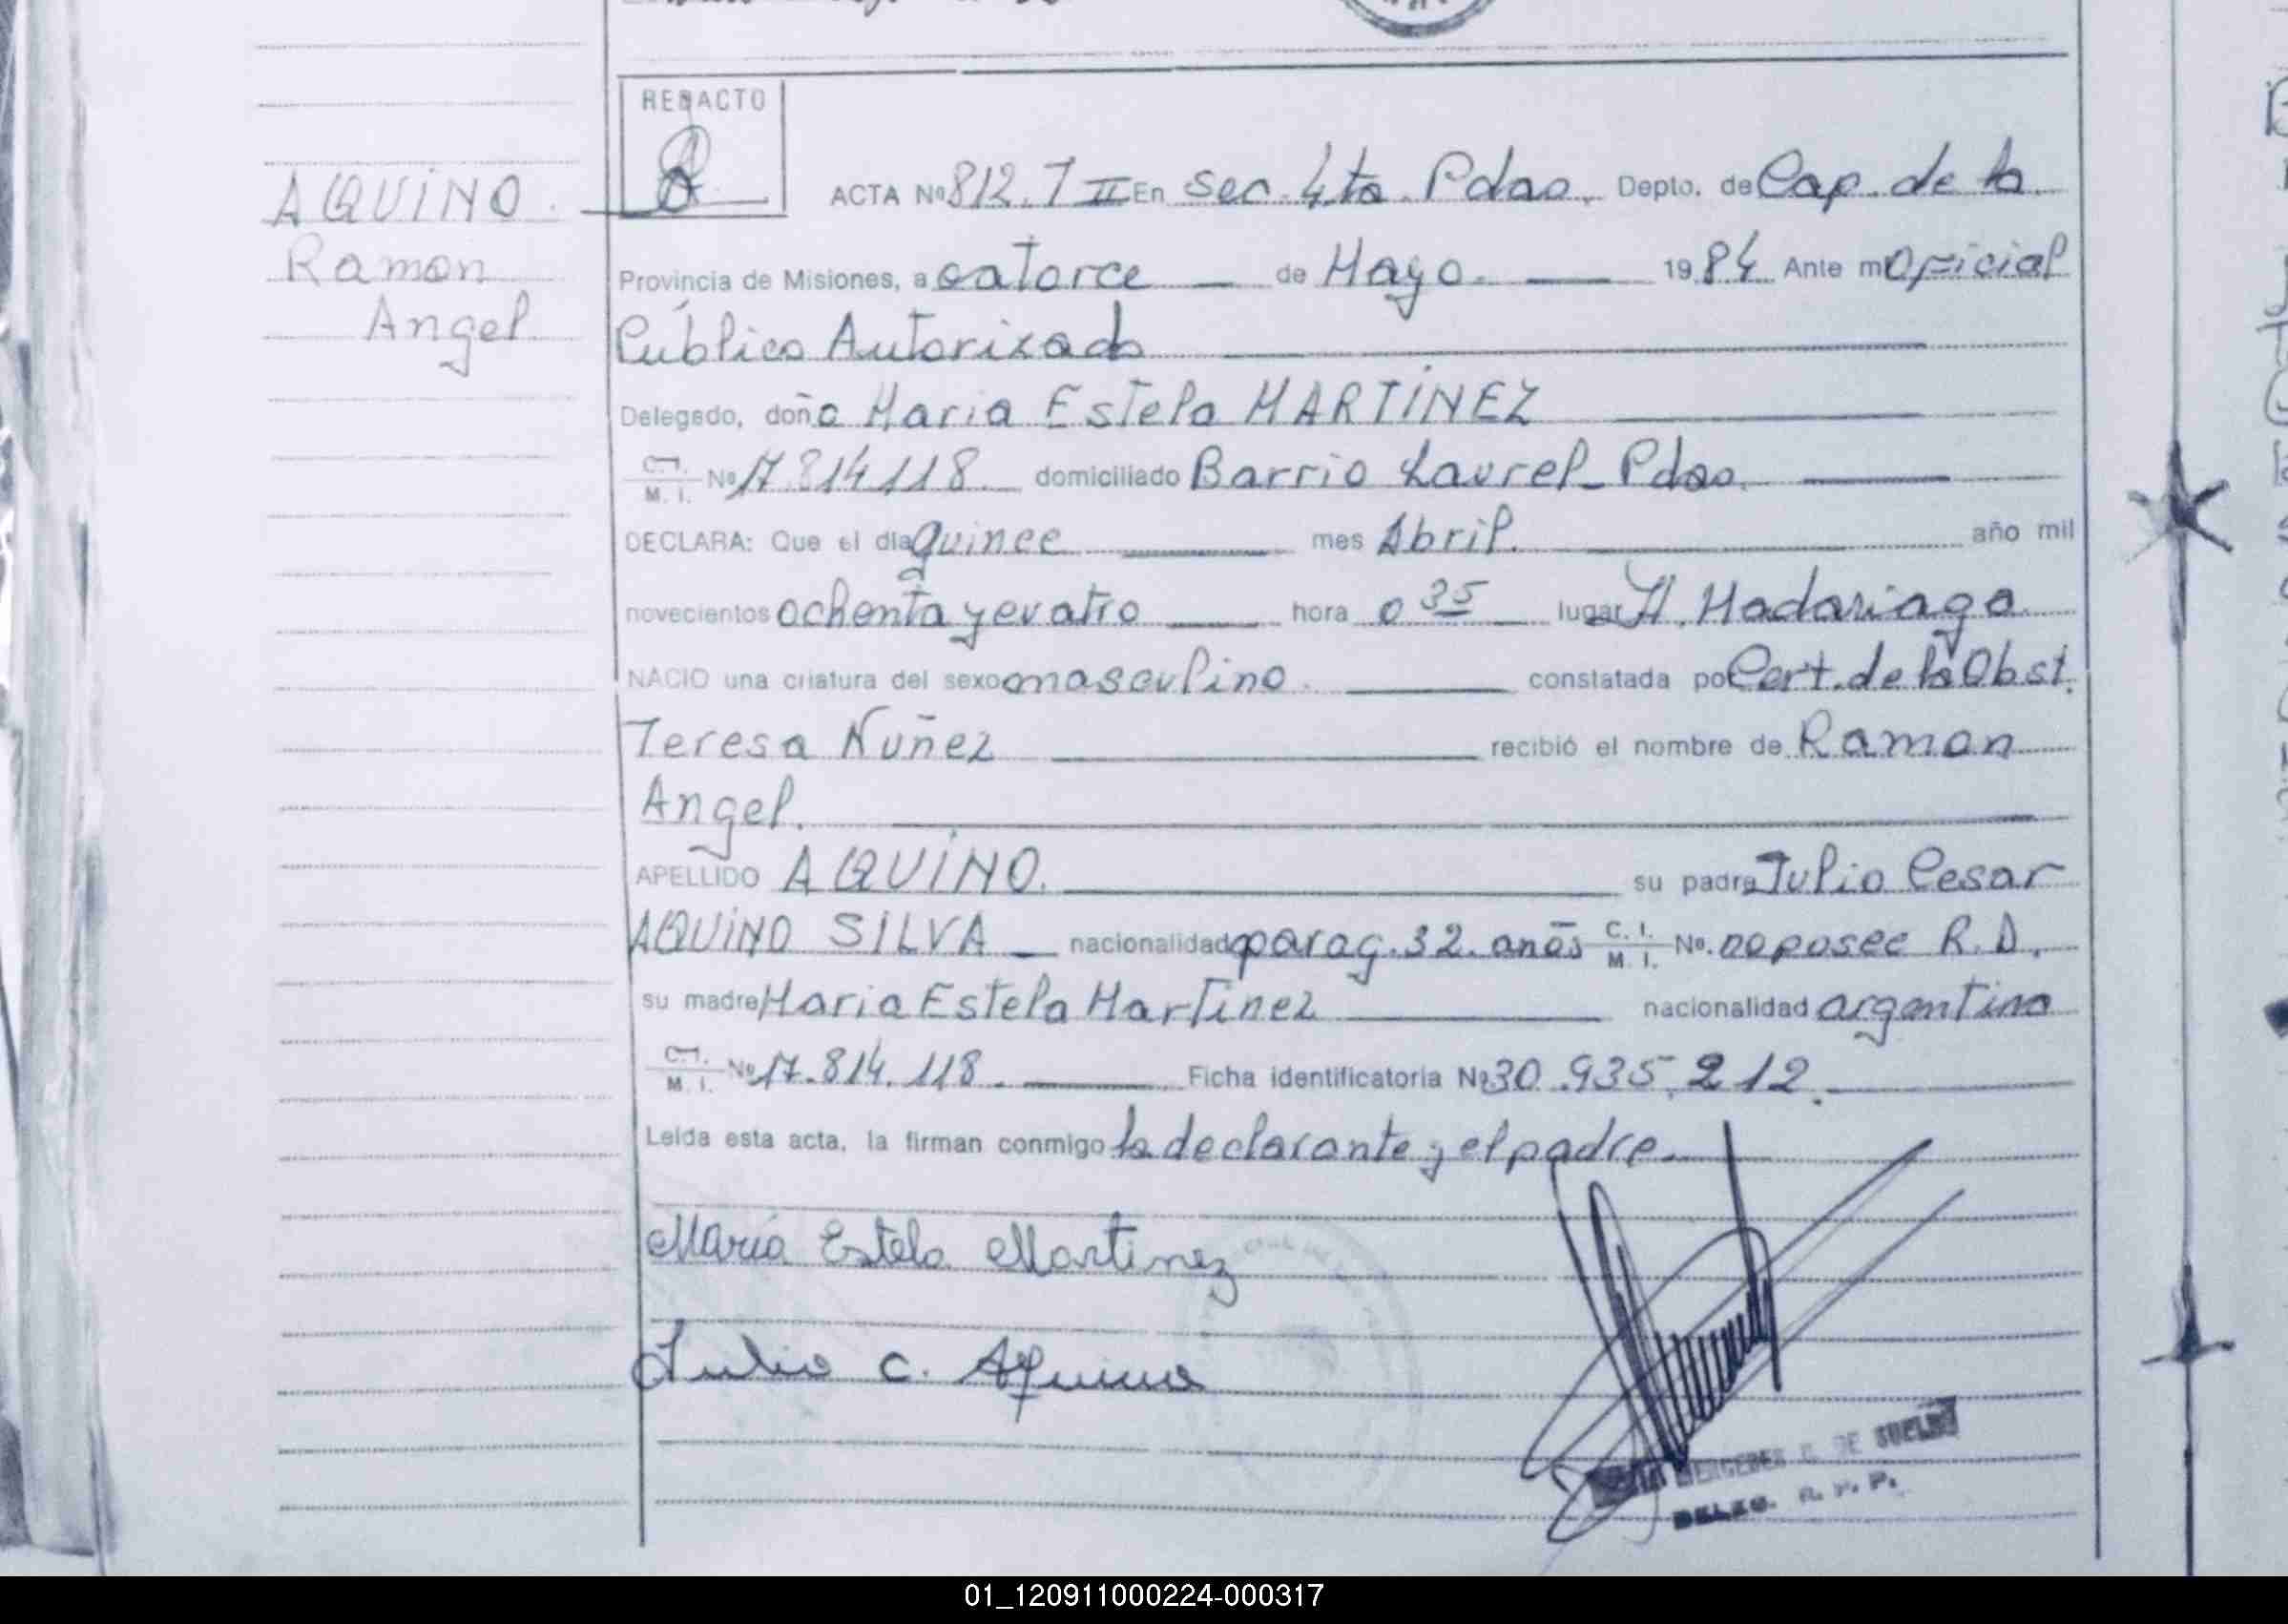 REDACTO
AQUINO.
Ramon
Angel.
ACTA Nº 812. T II En Sec. 4ta. Pdas. Depto. de Cap. de la
Provincia de Misiones, a catorce de Mayo. 1984 Ante mi Oficial
Público Autorizado
Delegado, doña Maria Estela MARTINEZ
C.I. M. I. Nº 17.814118. domiciliado Barrio Laurel_Pdas.
DECLARA: Que el día quince mes Abril. año mil
novecientos ochenta y cuatro hora 0 35 lugar H. Madariaga.
NACIO una criatura del sexo masculino. constatada por Cert. de la Obst.
Teresa Nuñez recibió el nombre de Ramon
Angel.
APELLIDO AQUINO. su padre Julio Cesar
AQUINO SILVA nacionalidad parag. 32. años C. I. M. I. Nº. no posee R.D.
su madre Maria Estela Martinez nacionalidad argentina
C.I. M. I. Nº 17.814.118. Ficha identificatoria Nº 30.935.212.
Leída esta acta, la firman conmigo la declarante y el padre.
María Estela Martinez
Julio C. Aquino
MERCEDES DE SUELDO
DELEG. R. P. P.
01_120911000224-000317